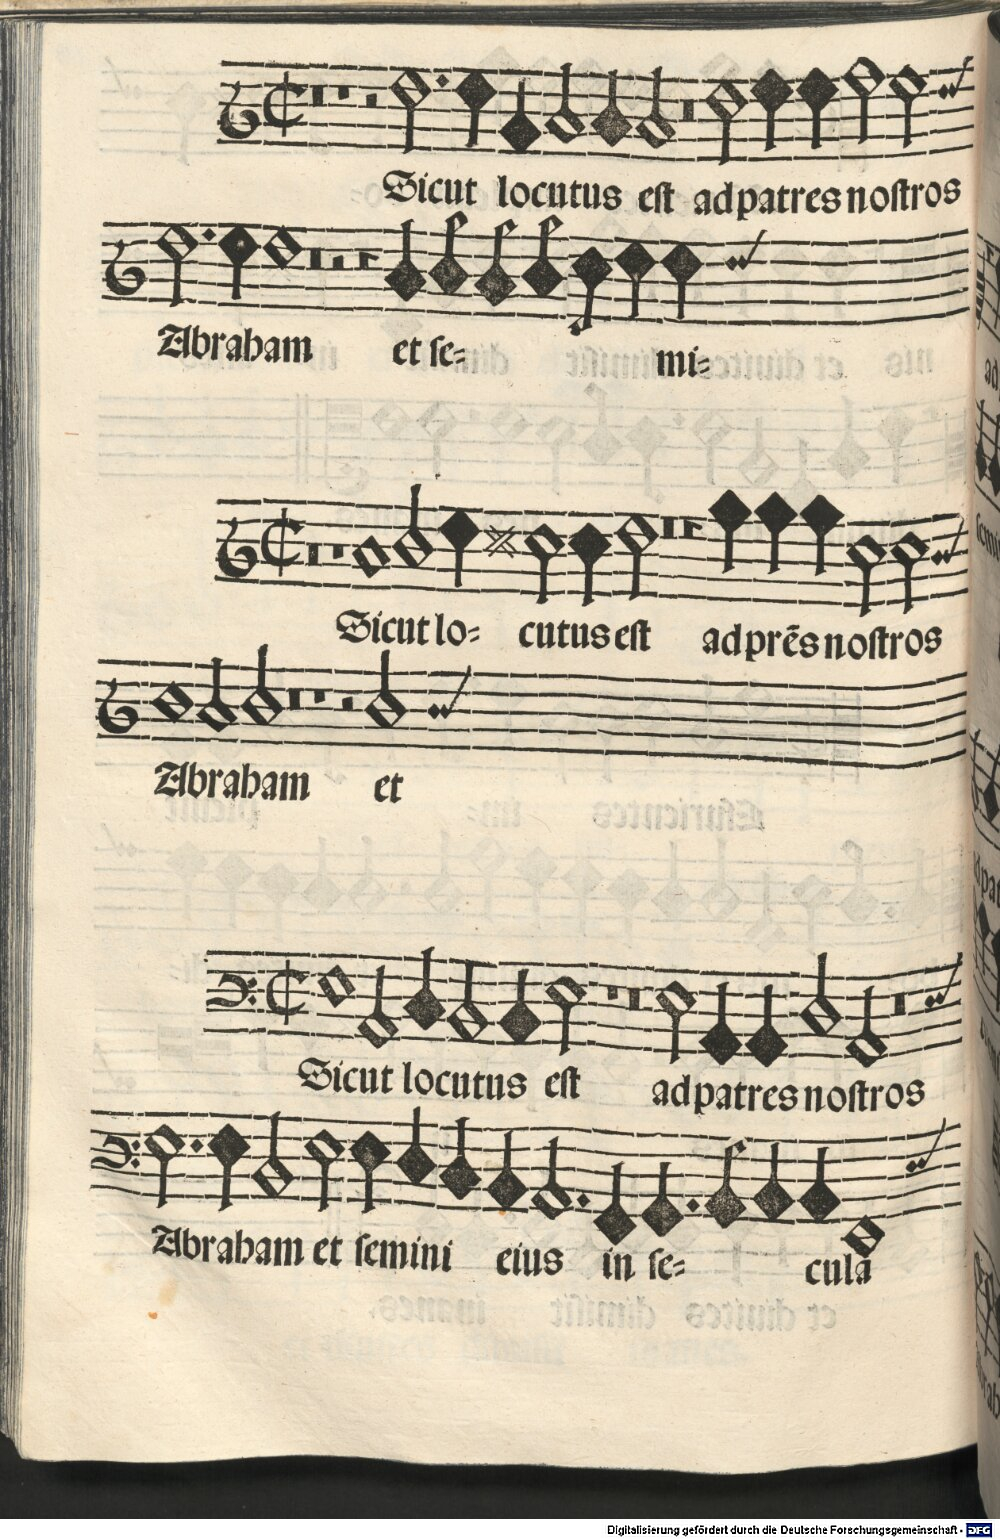 Sicut locutus est ad patres nostros
Abraham et se= mi=
Sicut lo= cutus est ad prēs nostros
Abraham et
Sicut locutus est ad patres nostros
Abraham et semini eius in se= cula
Digitalisierung gefördert durch die Deutsche Forschungsgemeinschaft - DFG